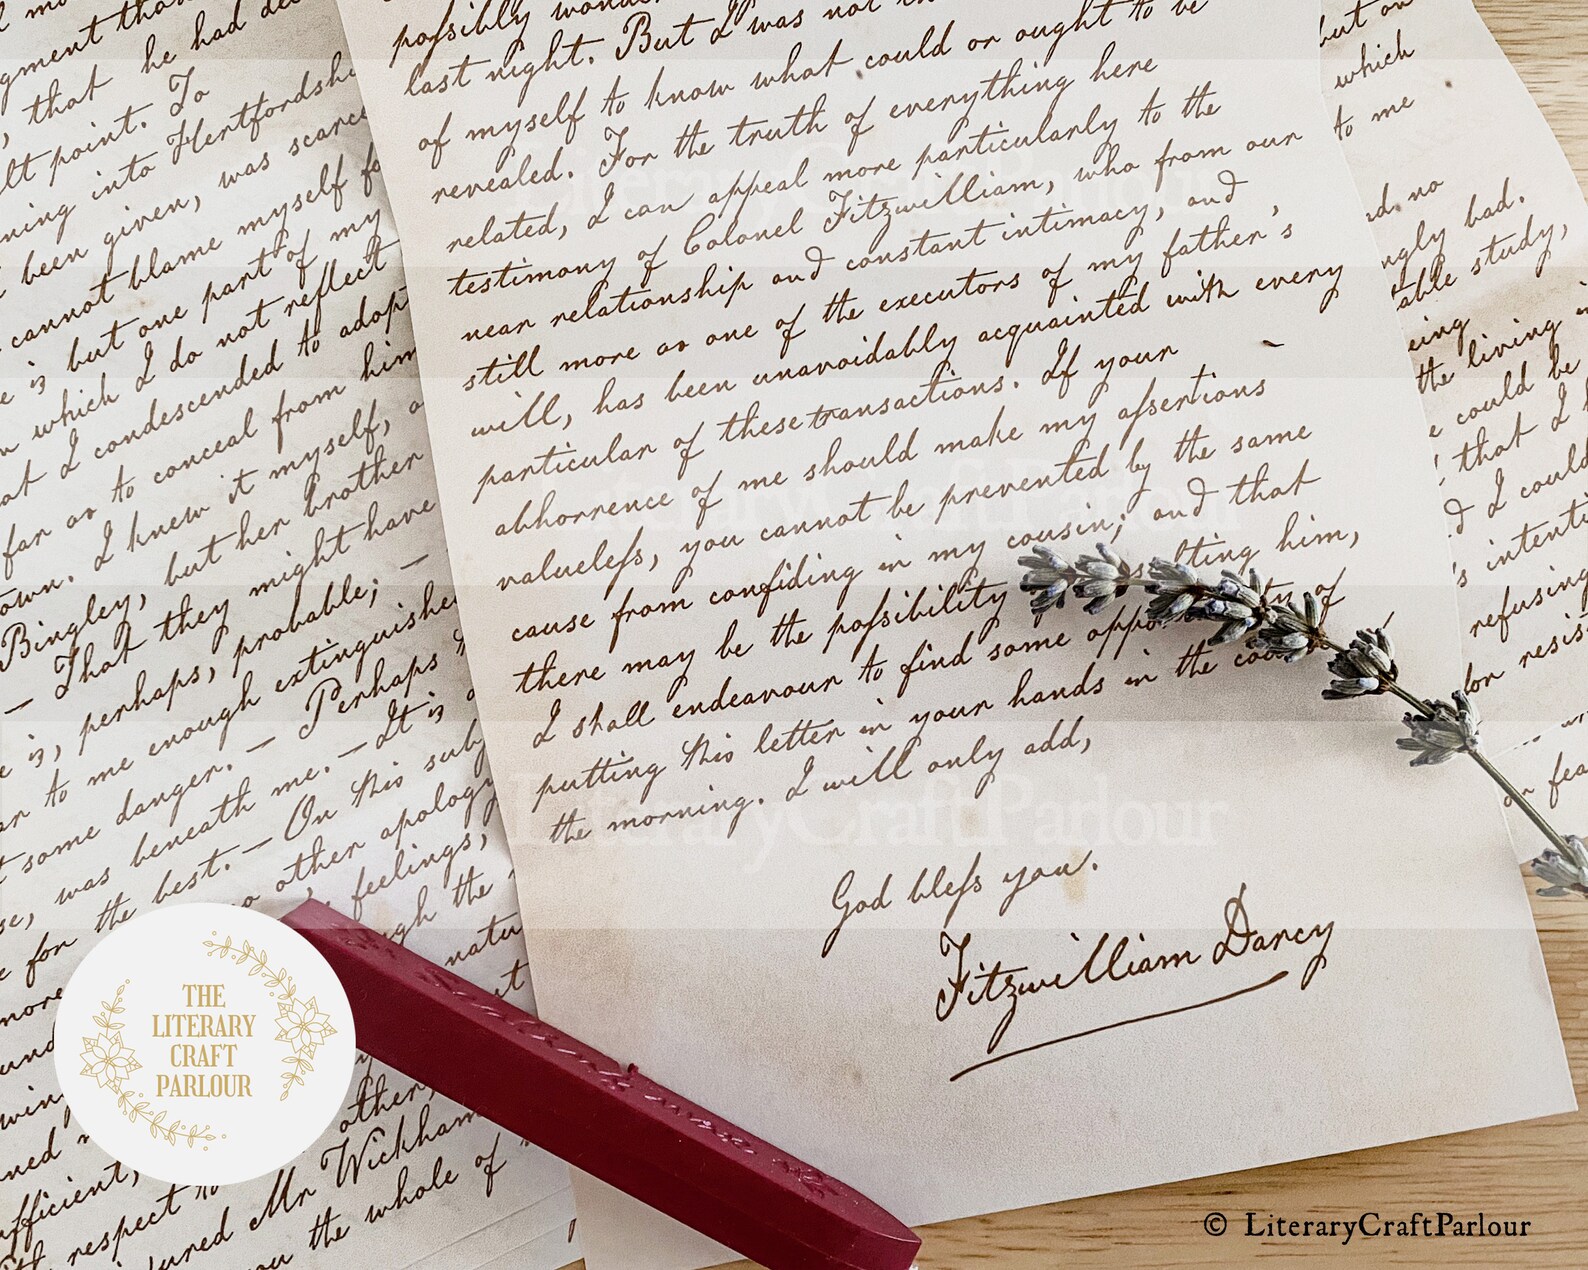 possibly
last night. But I was not
of myself to know what could or ought to be
revealed. For the truth of everything here
related, I can appeal more particularly to the
testimony of Colonel Fitzwilliam, who from our
near relationship and constant intimacy, and
still more as one of the executors of my father's
will, has been unavoidably acquainted with every
particular of these transactions. If your
abhorrence of me should make my assertions
valueless, you cannot be prevented by the same
cause from confiding in my cousin; and that
there may be the possibility him,
I shall endeavour to find some of
putting this letter in your hands in the
the morning. I will only add,
God bless you.
Fitzwilliam Darcy
that he had
point. To
into Hertfordshi
been given, was scarce
cannot blame myself fo
is but one part of my
which I do not reflect
I condescended to adopt
far as to conceal from him
own. I knew it myself,
Bingley, but her brother
— That they might have
is, perhaps, probable; —
to me enough extinguished
some danger. — Perhaps
was beneath me. — It is
for the best. — On this sub
other apology
feelings,
the
more natu
other,
Mr Wickham
respect to
the whole of
but on
which
to me
no
bad.
able study,
the living
could be
that I
I could
intenti
refusing
for resis
THE
LITERARY
CRAFT
PARLOUR
LiteraryCraftParlour
LiteraryCraftParlour
LiteraryCraftParlour
© LiteraryCraftParlour